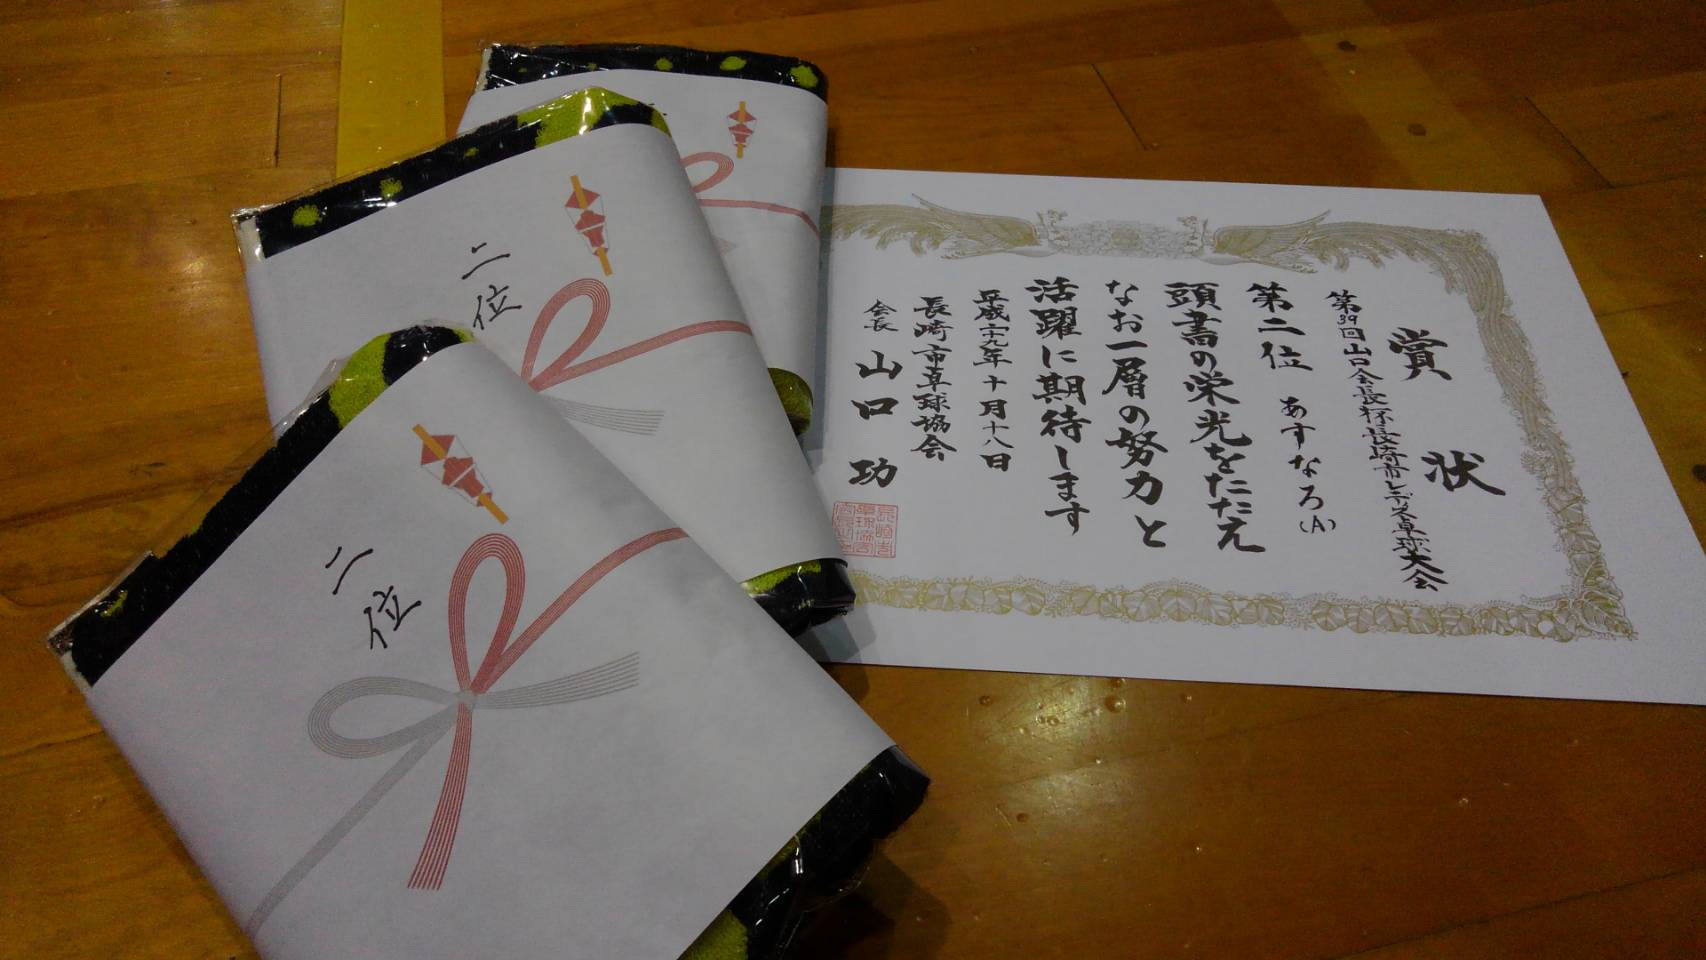 賞状
第39回山口会長杯長崎市レディス卓球大会
第二位 あすなろ(A)
頭書の栄光をたたえ
なお一層の努力と
活躍に期待します
平成二十九年十月十八日
長崎市卓球協会
会長 山口功
二位
二位